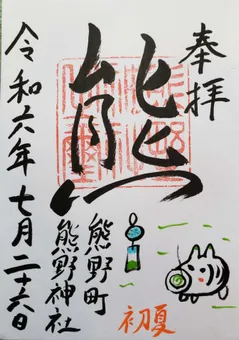 奉拝
熊
令和六年七月二十六日
熊野町
熊野神社
初夏